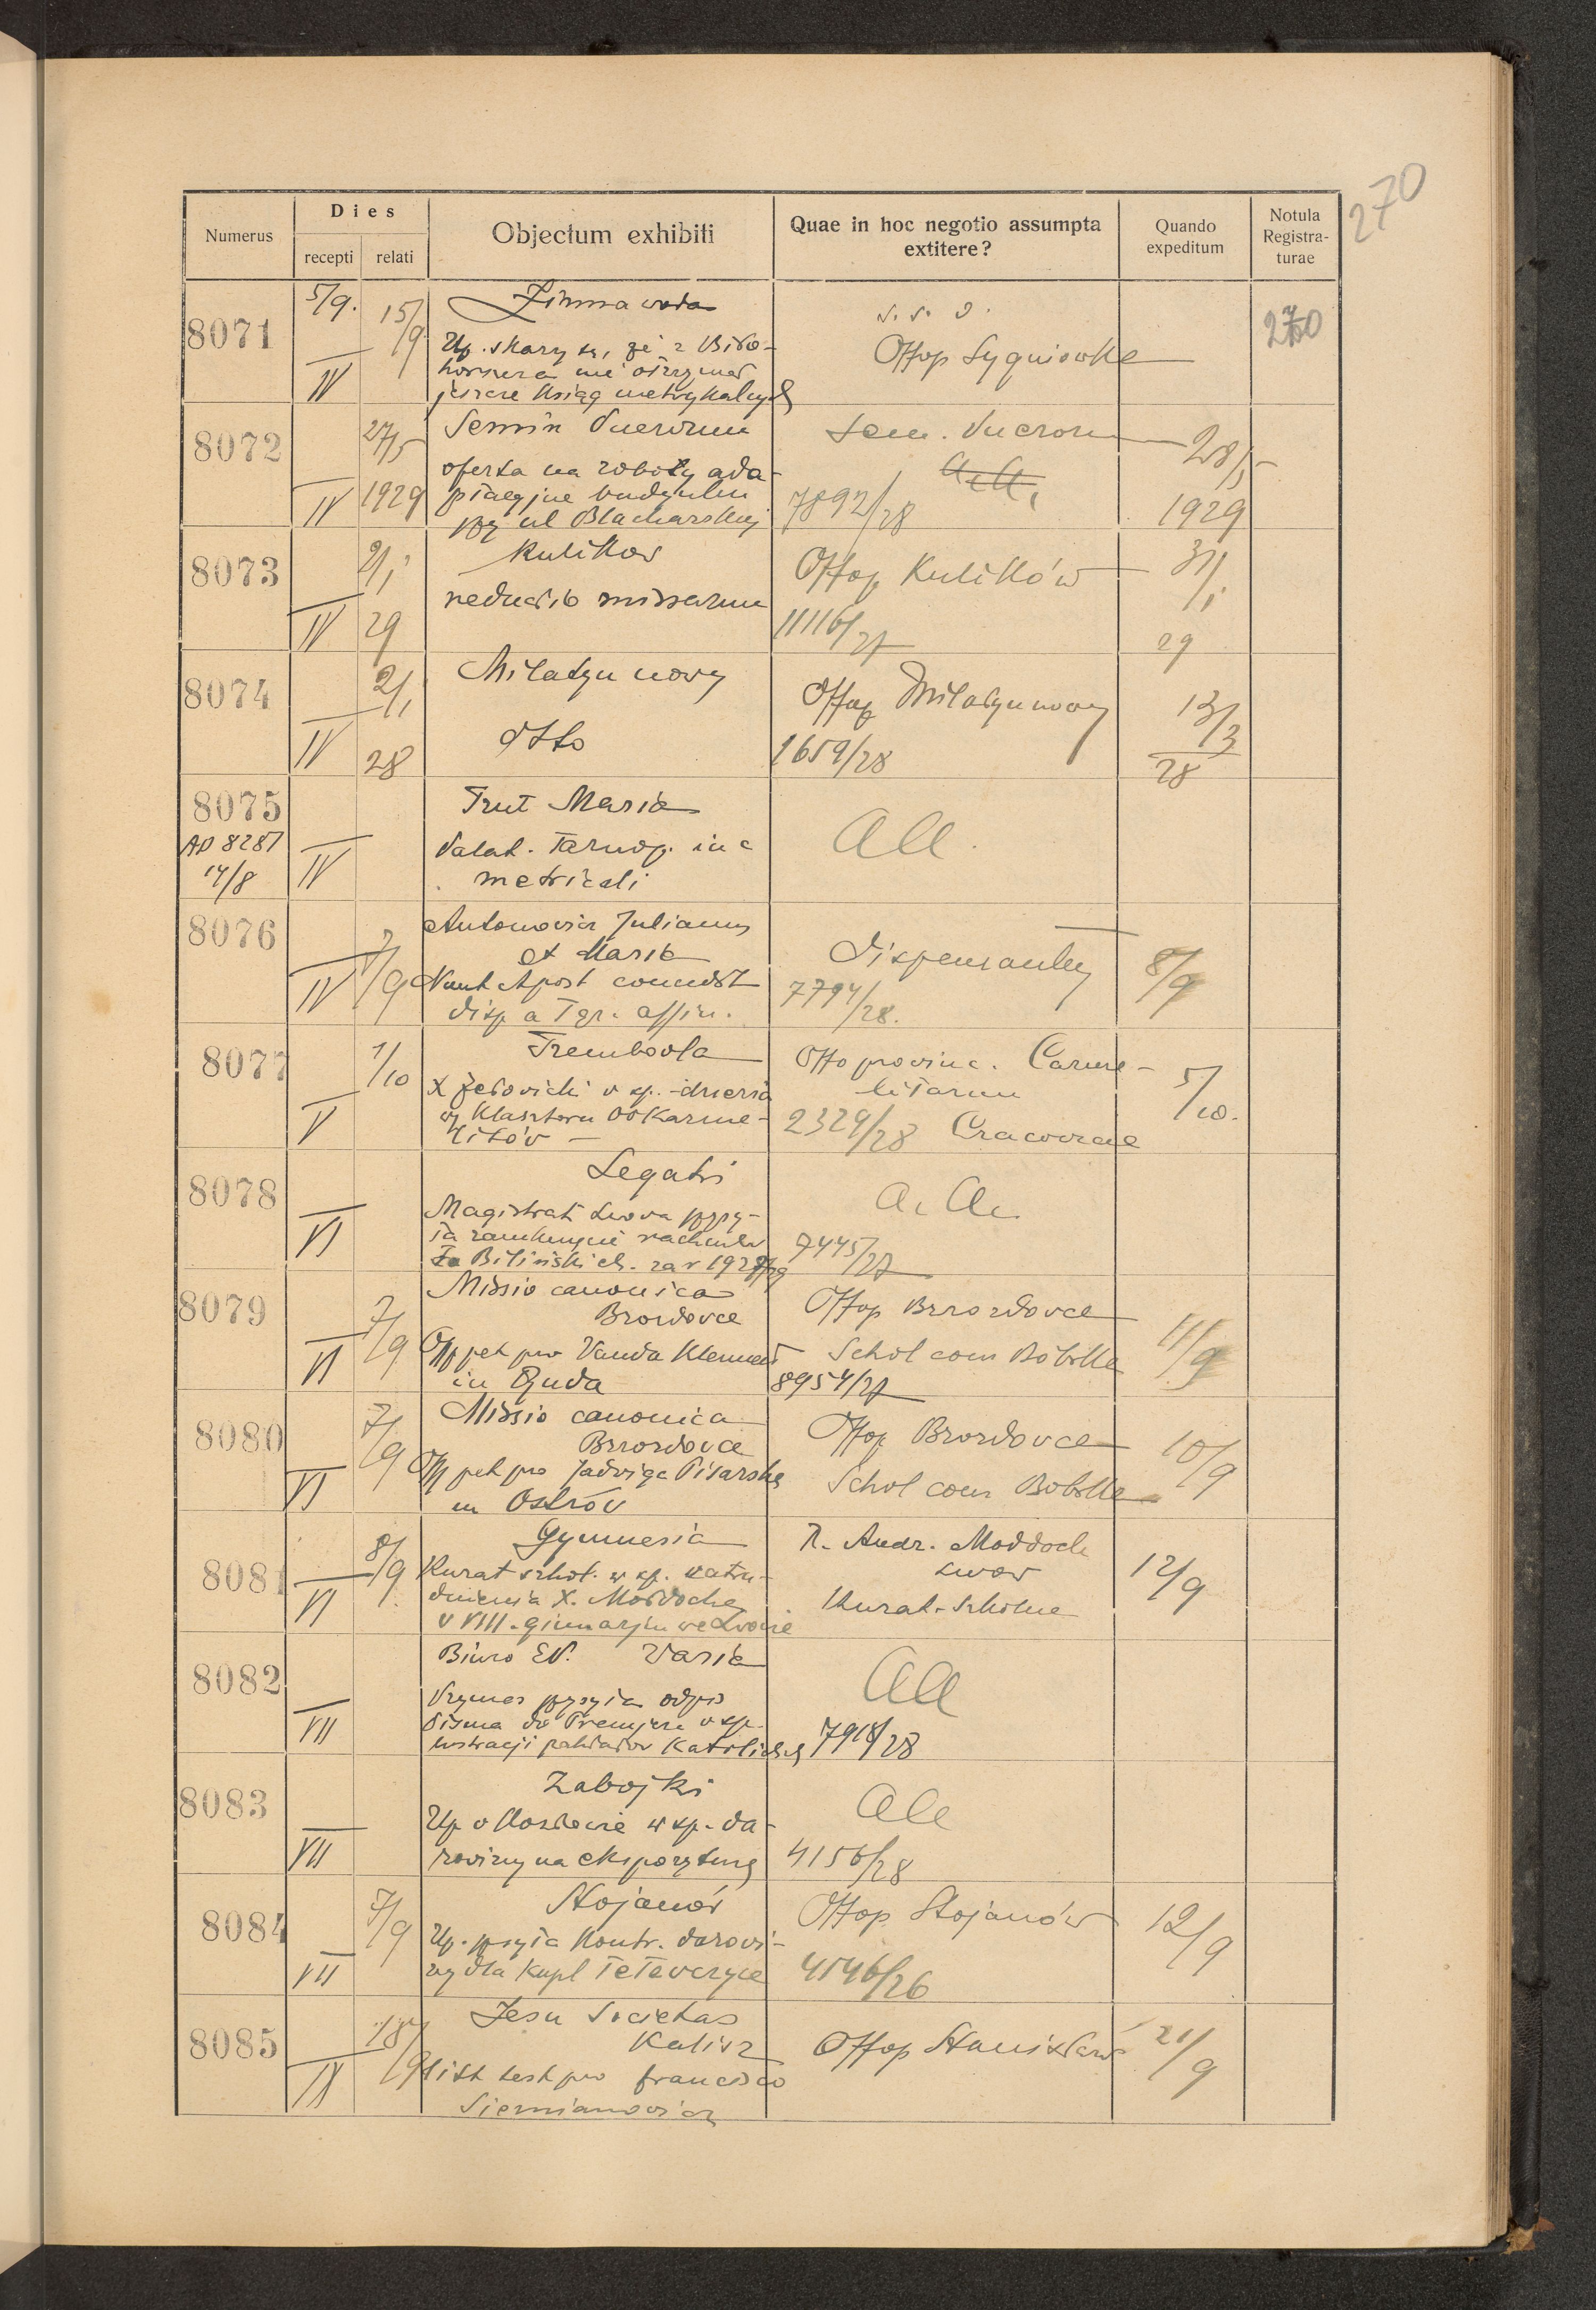 270
Numerus
Dies
recepti
relati
Objectum exhibiti
Quae in hoc negotio assumpta
extitere?
Quando
expeditum
Notula
Registra-
turae
8071
5/9.
15/9
IV
Zimna woda
Up. skarzy się, że z Biło-
horszcza nie otrzymał
jeszcze ksiąg metrykalnych
s. s. d.
Offop Sygniówka
270
8072
27/5
1929
IV
Semin Puerorum
oferta na roboty ada-
ptacyjne budynku
przy ul Blacharskiej
Sem. Puerorum
a. a.
7892/28
28/5
1929
8073
2/1
29
IV
Kulików
reductio missarum
Offop Kulików
11116/27
31/1
29
8074
2/1
28
IV
Milatyn nowy
dtto
Offop Milatyn nowy
1659/28
13/3
28
8075
AD 8287
14/8
IV
Trut Maria
Palat. Tarnop. in c
metricali
All.
8076
7/9
IV
Antonovicz Julianus
et Maria
Nunt Apost commdt
disp a I gr. affin.
Dispensantur
7794/28.
8/9
8077
1/10
V
Trembovla
X Żełovicki v sp.
w Klasztoru OO Karme-
litów -
Offo provinc. Carme-
litarum
2329/28 Cracoviae
5/10.
8078
VI
Legati
Magistrat Lwowa przsy-
ła zamknięcie rachunku
Bilińskich. za r 1927/28
a. a.
7445/27
8079
7/9
VI
Missio canonica
Brzozdovce
Off pet pro Vanda Klement
in Ruda
Offop Brzozdovce
Schol com Bóbrka
8954/27
11/9
8080
7/9
VI
Missio canonica
Brzozdovce
Off pet pro Jadviga Pisarska
in Ostróv
Offop Brzozdovce
Schol com Bobrka
10/9
8081
8/9
VI
Gymnasia
Kurat szkol. w sp. zatru-
dnienia X. Moddocha
v VIII. gimnazjum we Lwowie
R. Andr. Moddoch
Lwow
Kurat. Szkolne
12/9
8082
VII
Biuro EP. Varia
Prymas przsyła odpis
pisma do Premjera v sp.
lustracji zakładów Katolickich
All
7918/28
8083
VII
Zabojki
Up v Koszlowie w sp. da-
rovizny na ekspozyturę
All
4156/28
8084
7/9
VII
Stojanów
Up. przsyła kontr. darovi-
zny dla Kapl Tetevczyce
Offop Stojanów
4546/26
12/9
8085
18/9
IX
Jesu Societas
Kalisz
Litt test pro Francisco
Siemianovicz
Offop Stanisławów
21/9